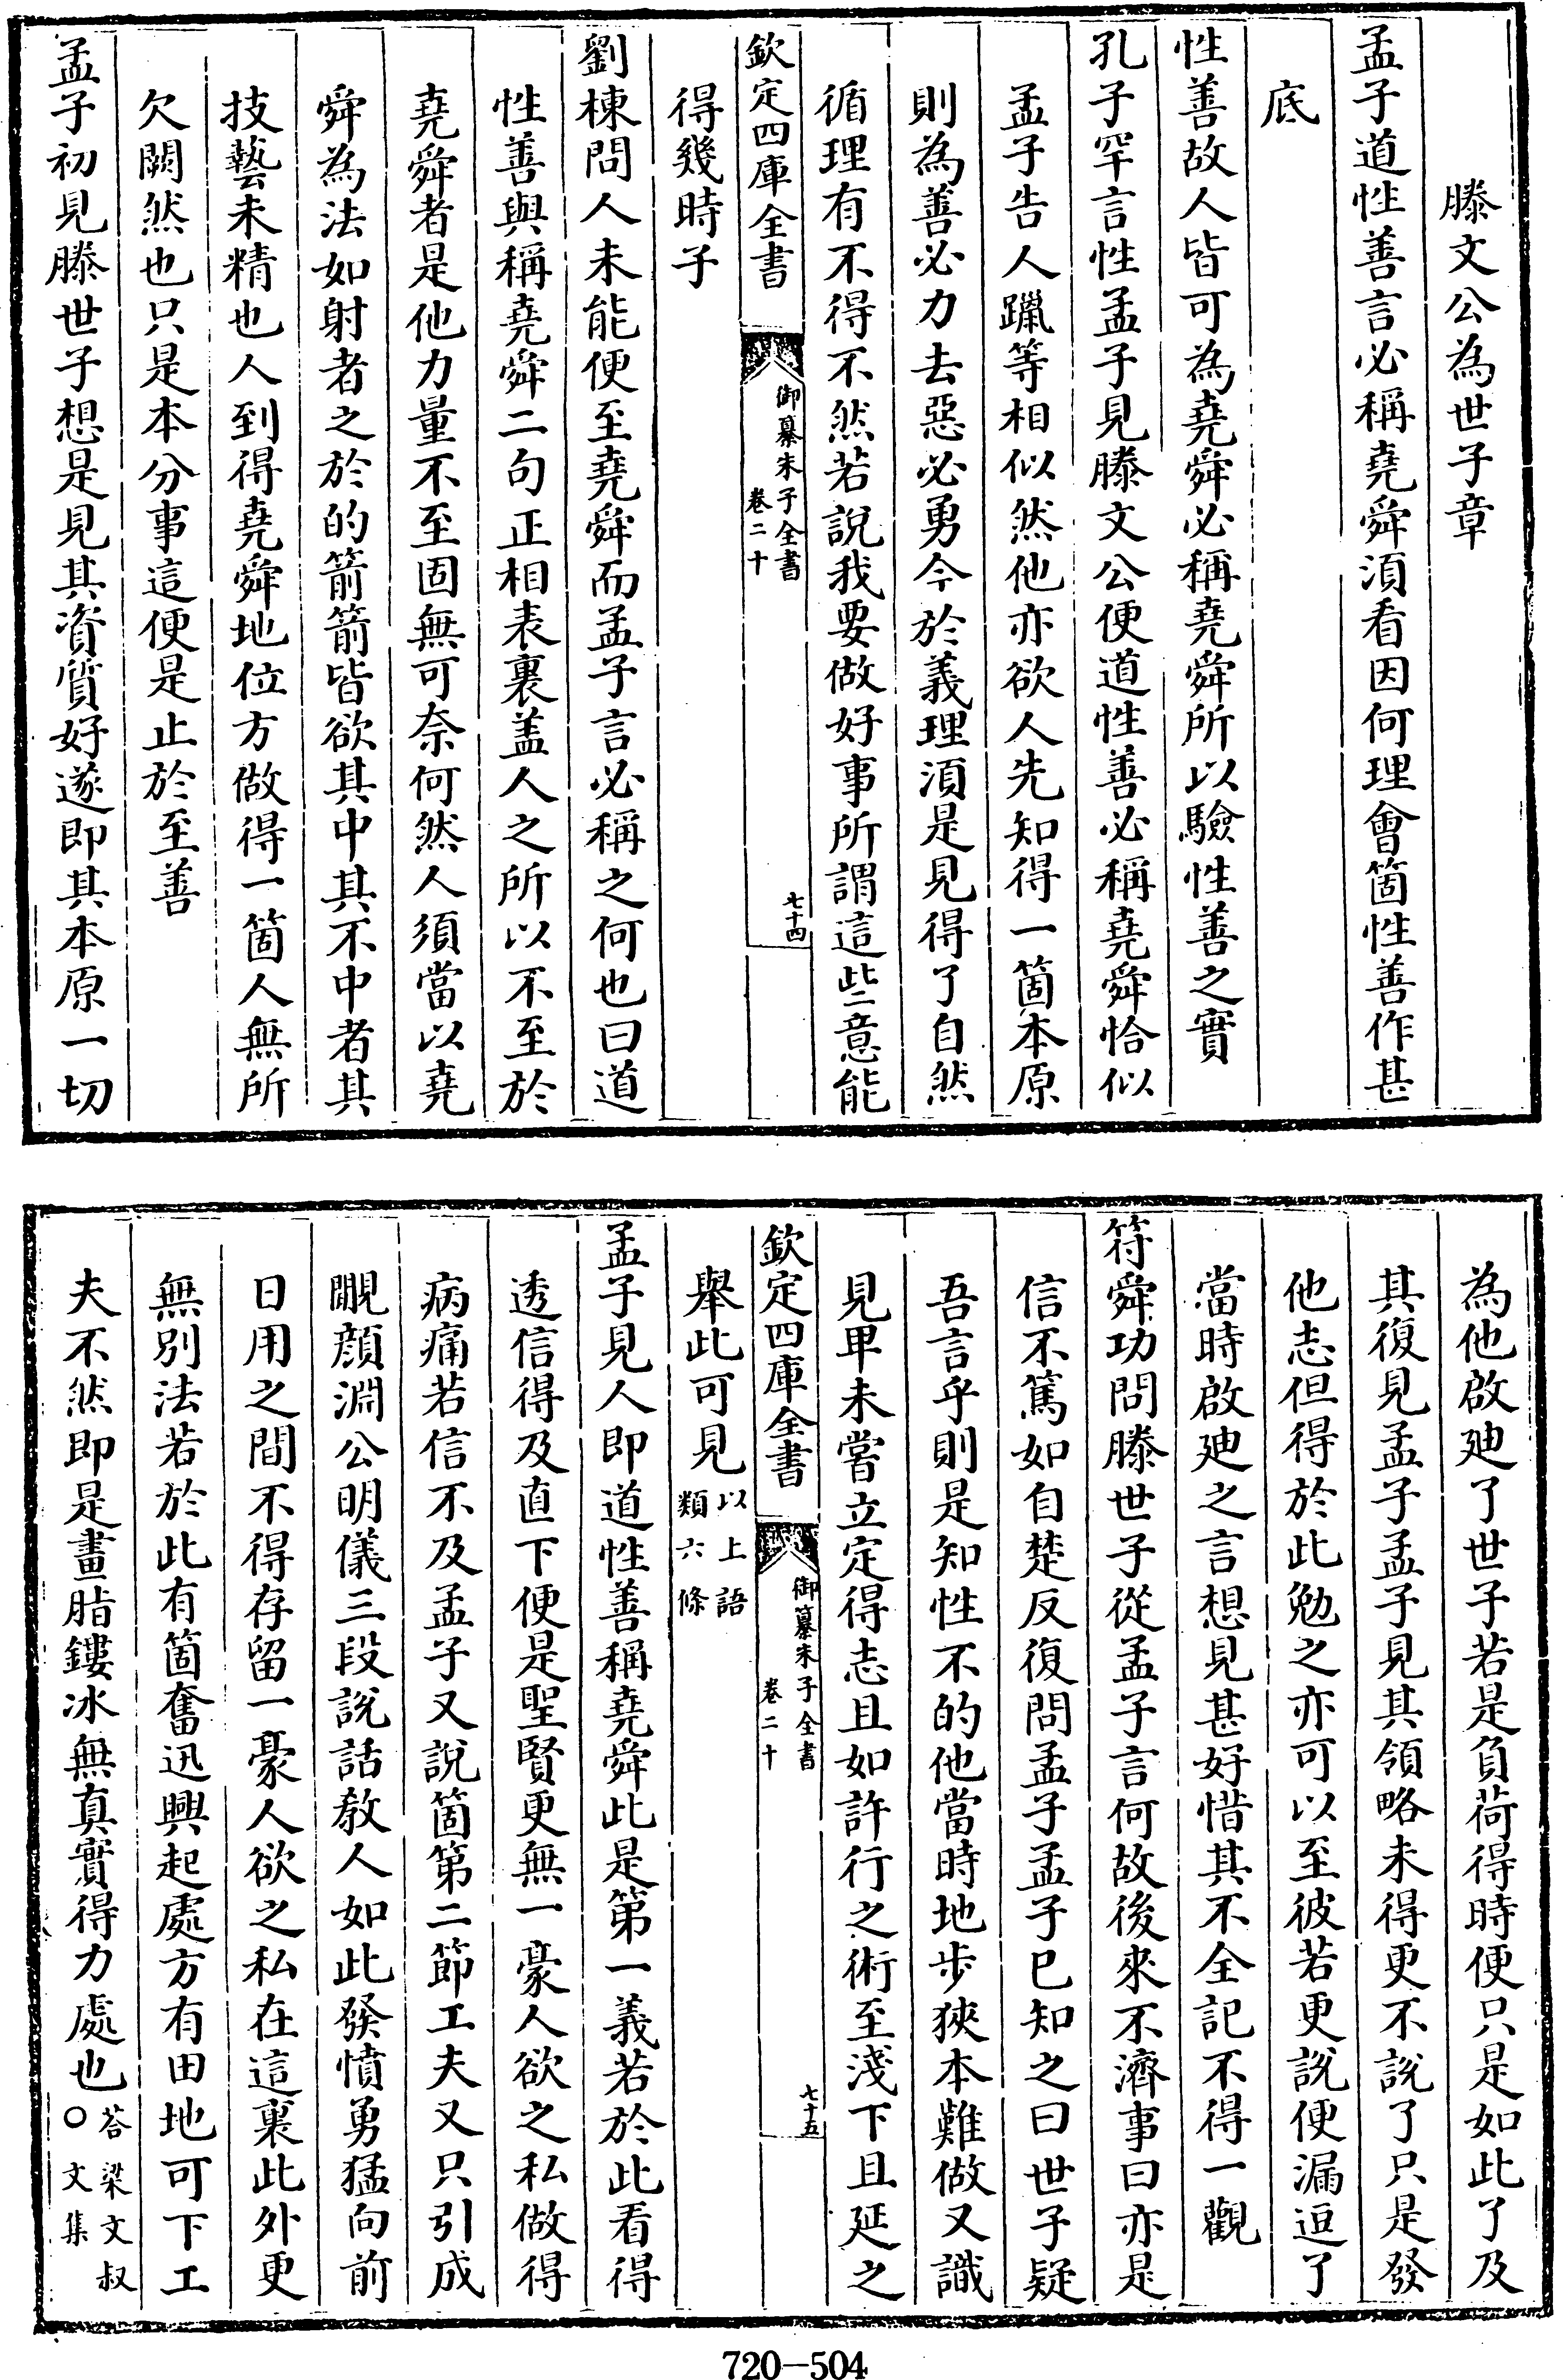 滕文公為世子章
孟子道性善言必稱堯舜須看因何理會箇性善作甚
底
性善故人皆可為堯舜必稱堯舜所以驗性善之實
孔子罕言性孟子見滕文公便道性善必稱堯舜恰似
孟子告人躐等相似然他亦欲人先知得一箇本原
則為善必力去惡必勇今於義理須是見得了自然
循理有不得不然若說我要做好事所謂這些意能
欽定四庫全書
御纂朱子全書
卷二十
七十四
得幾時子
劉棟問人未能便至堯舜而孟子言必稱之何也曰道
性善與稱堯舜二句正相表裏盖人之所以不至於
堯舜者是他力量不至固無可奈何然人須當以堯
舜為法如射者之於的箭箭皆欲其中其不中者其
技藝未精也人到得堯舜地位方做得一箇人無所
欠闕然也只是本分事這便是止於至善
孟子初見滕世子想是見其資質好遂即其本原一切
為他啟廸了世子若是負荷得時便只是如此了及
其復見孟子孟子見其領略未得更不說了只是發
他志但得於此勉之亦可以至彼若更說便漏逗了
當時啟廸之言想見甚好惜其不全記不得一觀
符舜功問滕世子從孟子言何故後來不濟事曰亦是
信不篤如自楚反復問孟子孟子已知之曰世子疑
吾言乎則是知性不的他當時地步狹本難做又識
見卑未嘗立定得志且如許行之術至淺下且延之
欽定四庫全書
御纂朱子全書
卷二十
七十五
舉此可見以上語
類六條
孟子見人即道性善稱堯舜此是第一義若於此看得
透信得及直下便是聖賢更無一豪人欲之私做得
病痛若信不及孟子又說箇第二節工夫又只引成
覵顏淵公明儀三段說話教人如此發憤勇猛向前
日用之間不得存留一豪人欲之私在這裏此外更
無別法若於此有箇奮迅興起處方有田地可下工
夫不然即是畫脂鏤冰無真實得力處也答梁文叔
○文集
720-504